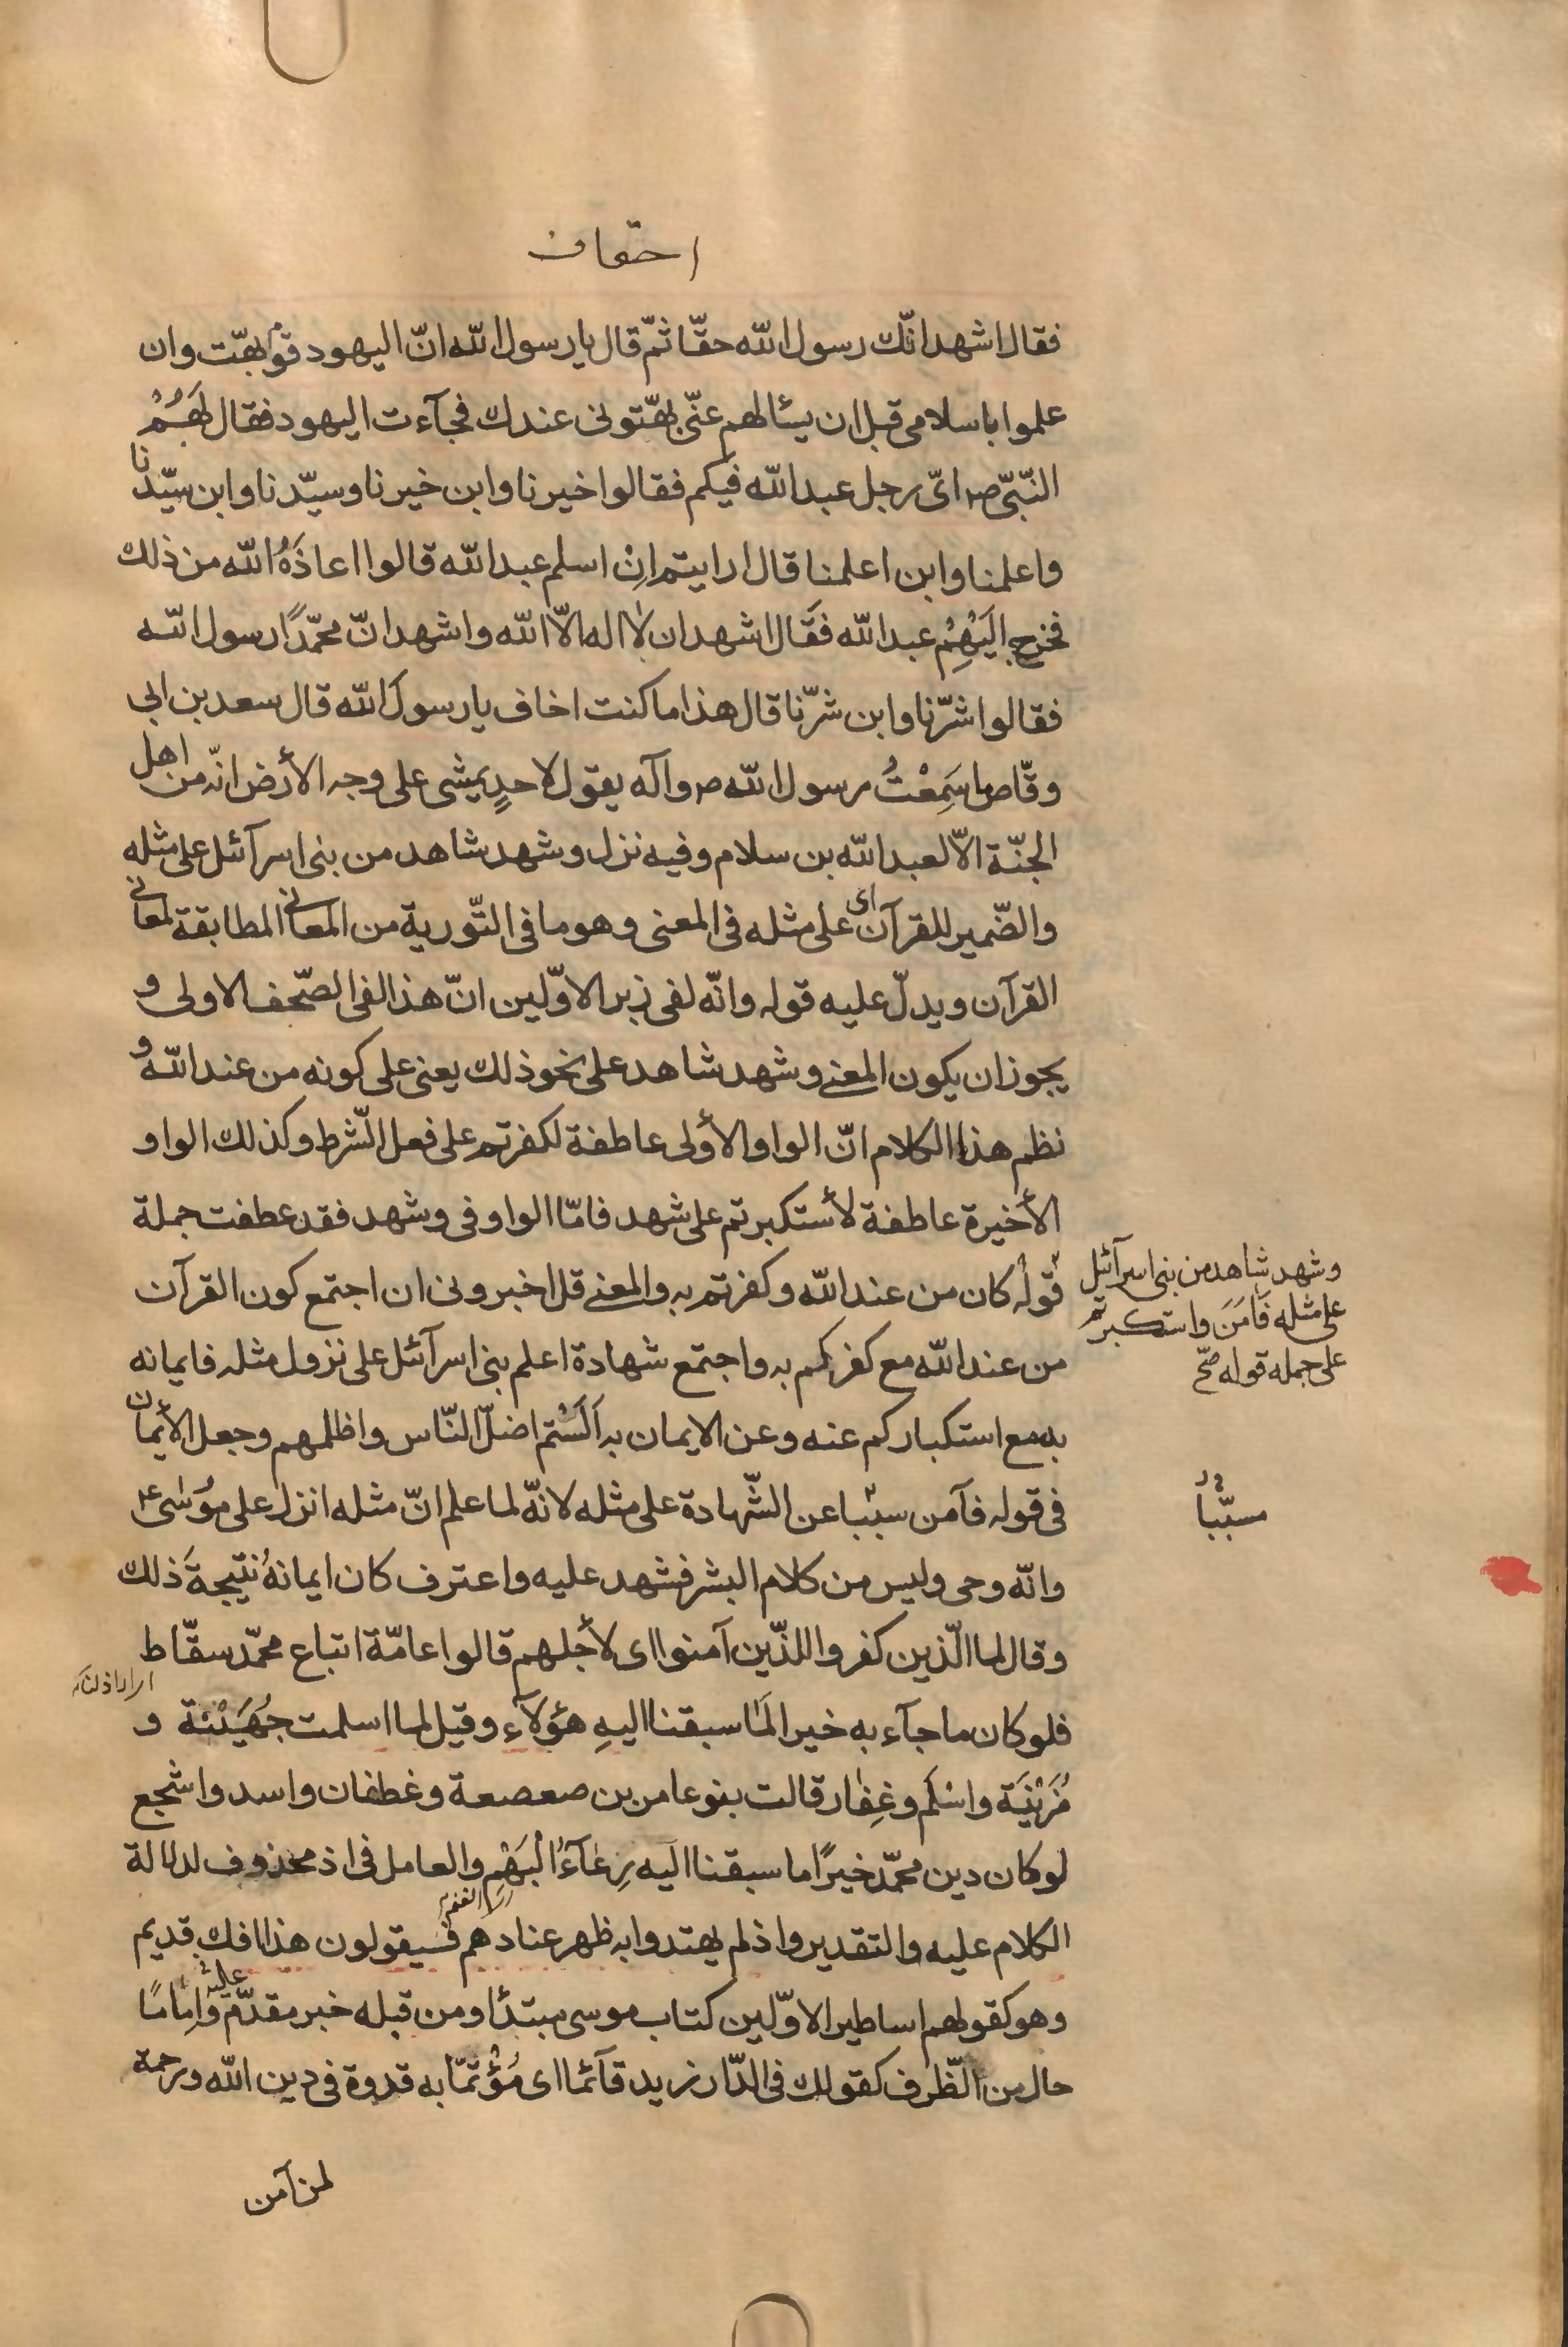 احقاف
فقال اشهد انّك رسول الله حقّا ثمّ قال يا رسول الله انّ اليهود قوم بهّت وان
علموا باسلامى قبل ان يسئالهم عنّى بهّتونى عندك فجآءت اليهود فقال لَهُمْ
النّبىّ ص اىّ رجل عبد الله فيكم فقالوا خيرنا وابن خيرنا وسيّدنا وابن سيّدنا
واعلمنا وابن اعلمنا قال ارايتم اِنْ اسلم عبد الله قالوا اعاذَهُ الله من ذلك
فخرج اِلَيْهِمْ عبد الله فقَال اشهد ان لا اله الّا الله واشهد انّ محمّدًا رسول الله
فقالوا شرّنا وابن شرّنا قال هذا ما كنت اخاف يا رسولَ الله قال سعد بن ابى
وقّاص ما سَمِعْتُ رسول الله ص وآله يقول لاحدٍ يمشى على وجه الأرض انّه من اهل
الجنّة الّا لعبد الله بن سلام وفيه نزل وشهد شاهد من بنى اسرآئل على مثله
والضّمير للقرآن اى على مثله فى المعنى وهو ما فى التّورية من المعانى المطابقة لمعانى
القرآن ويدلّ عليه قوله وانّه لفى زبر الاوّلين انّ هذا لفى الصّحف الاولى و
يجوز ان يكون المعنى وشهد شاهد على نحو ذلك يعنى على كونه من عند الله و
نظم هذا الكلام انّ الواو الأولى عاطفة لكفرتم على فعل الشّرط وكذلك الواو
الأخيرة عاطفة لأستكبرتم على شهد فامّا الواو فى وشهد فقد عطفت جملة
قوله كان من عند الله وكفرتم به والمعنى قل اخبرونى ان اجتمع كون القرآن
وشهد شاهد من بنى اسرآئل
على مثله فَامَنَ واستكبرتم
على جمله قوله صحّ
من عند الله مع كفركم به واجتمع شهادة اعلم بنى اسرآئل على نزول مثله فايمانه
به مع استكباركم عنه وعن الايمان به اَلَسْتم اضلّ النّاس واظلمهم وجعل الأيمان
فى قوله فآمن سبّبا عن الشّهادة على مثله لانّه لما علم انّ مثله انزل على مُوسٰى ع
مسبّبا
وانّه وحى وليس من كلام البشر فشهد عليه واعترف كان ايمانهُ نتيجةَ ذلك
وقال لما الّذين كفروا للذّين آمنوا اى لأجلهم قالوا عامّة اتباع محمّد سقّاط
فلو كان ما جآء به خيرا لَمٰا سبقنا اليهِ هؤلآء وقيل لما اسلمت جُهَيْنَة و
مُزَيْنَة واسْلَم وغِفٰار قالت بنو عامر بن صعصعة وغطفان واسد واشجع
لو كان دين محمّد خيرًا ما سبقنا اليه رِعٰآءُ الْبَهْمِ والعامل فى اذ محذوف لدلالة
الكلام عليه والتقدير واذ لم يهتدوا به ظهر عنادهم فسيقولون هذا افك قديم
وهو كقولهم اساطير الاوّلين كتاب موسى مبتدًا ومن قبله خبر مقدّم عليه وَاِمٰامًا
حال من الظّرف كقولك فى الدّار زيد قآئما اى مُؤْتمّا به قدوة فى دين الله ورحمة
لمن آمن